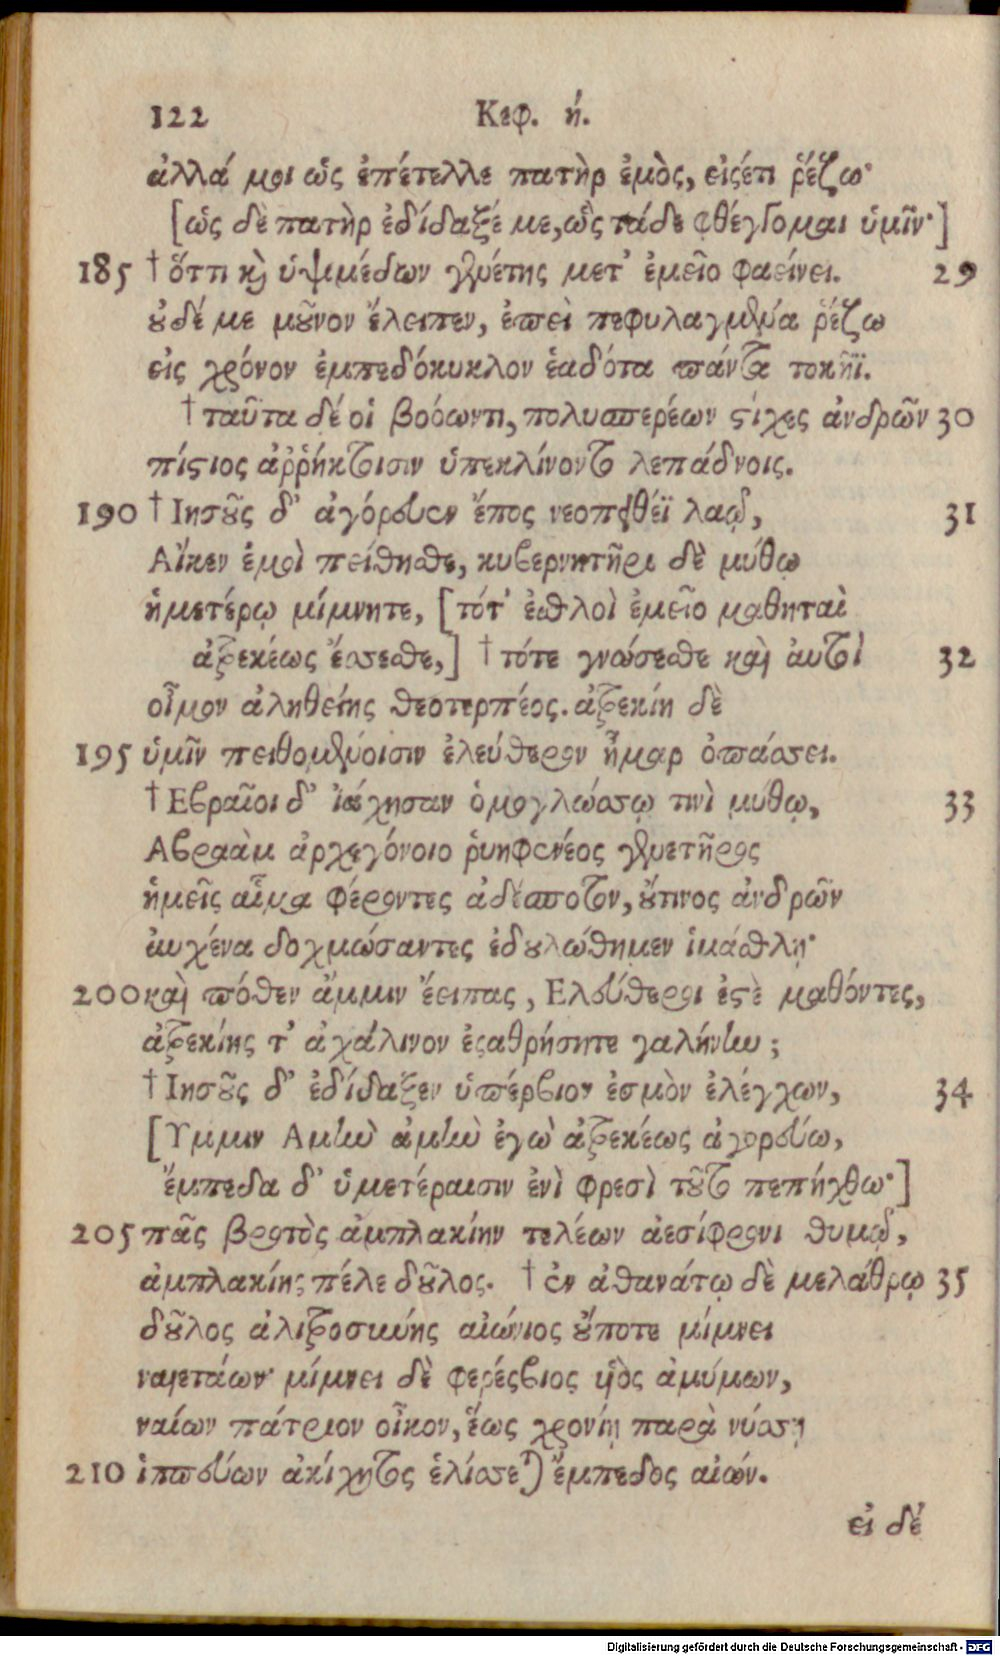 122 Κεφ. ή.
ἀλλά μοι ὡς ἐπέτελλε πατὴρ ἐμὸς, εἰςέτι ῥέζω·
[ὡς δὲ πατὴρ ἐδίδαξέ με, ὣς τάδε φθέγγομαι ὑμῖν·]
185 † ὅττι καὶ ὑψιμέδων γενέτης μετ' ἐμεῖο φαείνει. 29
οὐδέ με μοῦνον ἔλειπεν, ἐπεὶ πεφυλαγμένα ῥέζω
εἰς χρόνον ἐμπεδόκυκλον ἑαδότα πάντα τοκῆϊ.
† ταῦτα δέ οἱ βοόωντι, πολυσπερέων στίχες ἀνδρῶν 30
πίστιος ἀῤῥήκτοισιν ὑπεκλίνοντο λεπάδνοις.
190 † Ιησοῦς δ' ἀγόρευεν ἔπος νεοπειθέϊ λαῷ, 31
Αἴκεν ἐμοὶ πείθησθε, κυβερνητῆρι δὲ μύθῳ
ἡμετέρῳ μίμνητε, [τότ' ἐσθλοὶ ἐμεῖο μαθηταὶ
ἀτρεκέως ἔσσεσθε,] † τότε γνώσεσθε καὶ ἀυτοὶ 32
οἶμον ἀληθείης θεοτερπέος. ἀτρεκίη δὲ
195 ὑμῖν πειθομένοισιν ἐλεύθερον ἦμαρ ὀπάσσει.
† Εβραῖοι δ' ἰάχησαν ὁμογλώσσῳ τινὶ μύθῳ, 33
Αβραὰμ ἀρχεγόνοιο ῥυηφενέος γενετῆρος
ἡμεῖς αἷμα φέροντες ἀδέσποτον, οὔτινος ἀνδρῶν
ἀυχένα δοχμώσαντες ἐδουλώθημεν ἱμάσθλῃ·
200 καὶ πόθεν ἄμμιν ἔειπας, Ελεύθεροι ἐστὲ μαθόντες,
ἀτρεκίης τ' ἀχάλινον ἐσαθρήσητε γαλήνην;
† Ιησοῦς δ' ἐδίδαξεν ὑπέρβιον ἐσμὸν ἐλέγχων, 34
[Υμμιν Αμὴν ἀμὴν ἐγὼ ἀτρεκέως ἀγορεύω,
ἔμπεδα δ' ὑμετέραισιν ἐνὶ φρεσὶ τοῦτο πεπήχθω·]
205 πᾶς βροτὸς ἀμπλακίην τελέων ἀεσίφρονι θυμῷ,
ἀμπλακίης πέλε δοῦλος. † ἐν ἀθανάτῳ δὲ μελάθρῳ 35
δοῦλος ἀλιτροσύνης αἰώνιος οὔποτε μίμνει
ναιετάων· μίμνει δὲ φερέσβιος υἱὸς ἀμύμων,
ναίων πάτριον οἶκον, ἕως χρονίῃ παρὰ νύσσῃ
210 ἱππεύων ἀκίχητος ἑλίσσεται ἔμπεδος αἰών.
εἰ δέ
Digitalisierung gefördert durch die Deutsche Forschungsgemeinschaft - DFG